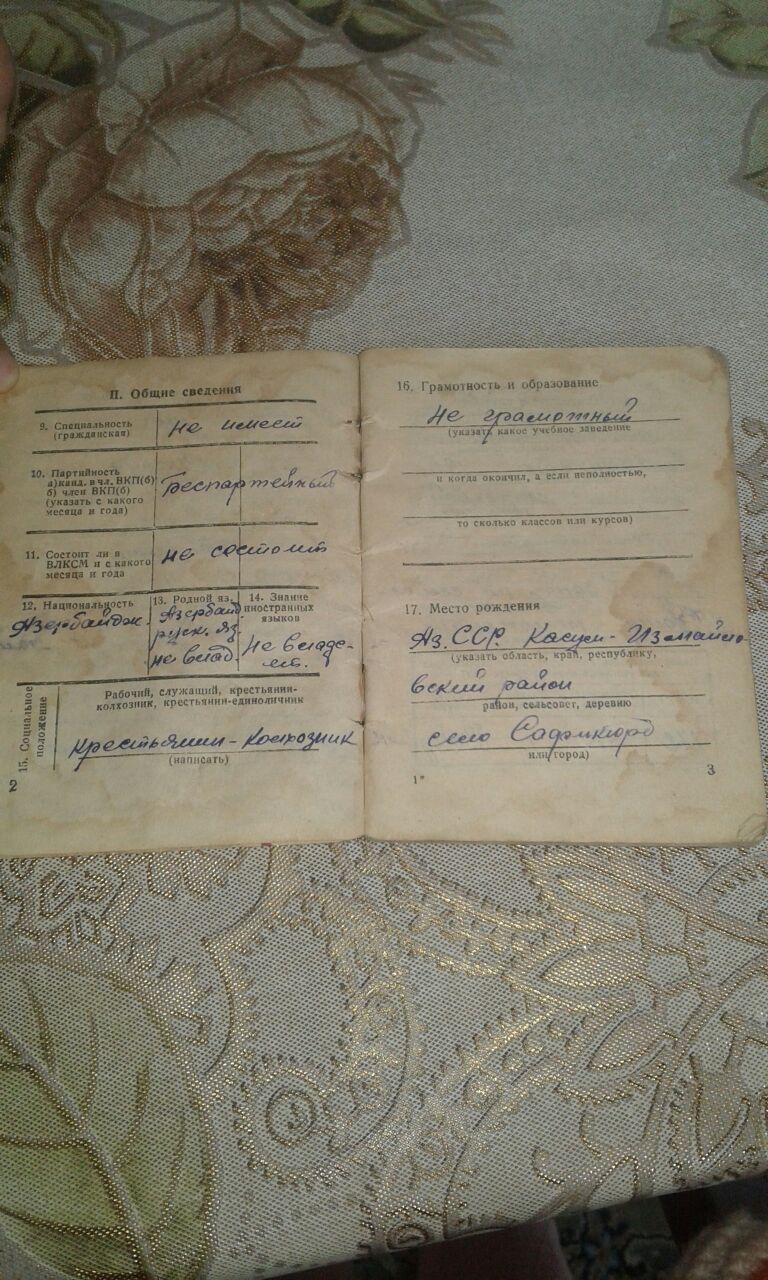 II. Общие сведения
9. Специальность
(гражданская)
не имеет
10. Партийность
а)канд. в чл. ВКП(б)
б) член ВКП(б)
(указать с какого
месяца и года)
Беспартейный
11. Состоит ли в
ВЛКСМ и с какого
месяца и года
не состоит
12. Национальность
Азербайдж.
13. Родной яз.
Азербайд
русск. яз.
не влад.
14. Знание
иностранных
языков
Не владе-
ет.
15. Социальное
положение
Рабочий, служащий, крестьянин-
колхозник, крестьянин-единоличник
Крестьянин-Колхозник
(написать)
2
16. Грамотность и образование
Не грамотный
(указать какое учебное заведение
и когда окончил, а если неполностью,
то сколько классов или курсов)
17. Место рождения
Аз. ССР. Касум-Измайло
(указать область, край, республику,
вский район
район, сельсовет, деревню
село
или город)
1*
3